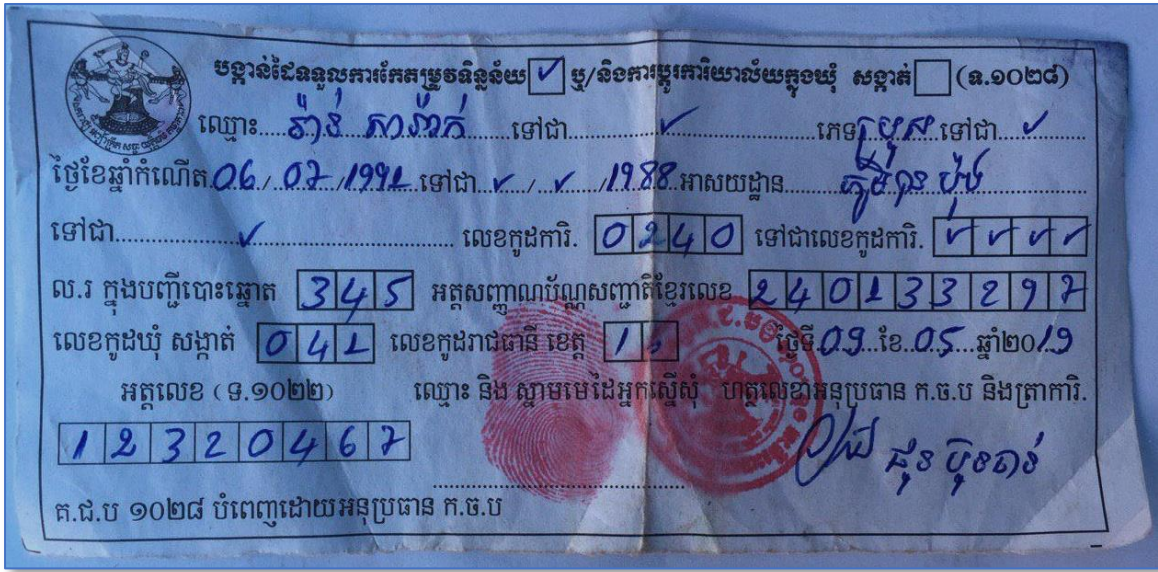 បង្កាន់ដៃទទួលការកែតម្រូវទិន្នន័យ ✓ ឬ/និងការប្តូរការិយាល័យក្នុងឃុំ សង្កាត់ (ទ.១០២៨)
ឈ្មោះ.... វ៉ាន់ សាវ៉ាក់ ....ទៅជា.... ✓ ....ភេទ ប្រុស ទៅជា ✓
ថ្ងៃខែឆ្នាំកំណើត 06 / 07 / 1991 ទៅជា ✓ / ✓ / 1988 អាសយដ្ឋាន.... ភូមិ
ទៅជា.... ✓ .... លេខកូដការិ. 0240 ទៅជាលេខកូដការិ. ✓ ✓ ✓ ✓
ល.រ ក្នុងបញ្ជីបោះឆ្នោត 345 អត្តសញ្ញាណប័ណ្ណសញ្ជាតិខ្មែរលេខ 240133297
លេខកូដឃុំ សង្កាត់ 041 លេខកូដរាជធានី ខេត្ត ថ្ងៃទី 09 ខែ 05 ឆ្នាំ២០19
អត្តលេខ (ទ.១០២២) ឈ្មោះ និង ស្នាមមេដៃអ្នកស្នើសុំ ហត្ថលេខាអនុប្រធាន ក.ច.ប និងត្រាការិ.
12320467
គ.ជ.ប ១០២៨ បំពេញដោយអនុប្រធាន ក.ច.ប